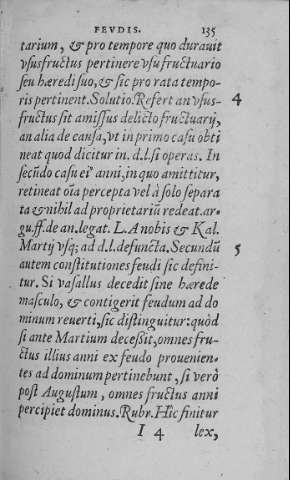 FEVDIS. 135
tarium, & pro tempore quo durauit
vsusfructus pertinere vsufructuario
seu hæredi suo, & sic pro rata tempo-
ris pertinent. Solutio. Refert an vsus- 4
fructus sit amissus delicto fructuarij,
an alia de causa, vt in primo casu obti
neat quod dicitur in. d. l. si operas. In
secũdo casu eiº anni, in quo amittitur,
retineat oĩa percepta vel à solo separa
ta & nihil ad proprietariũ redeat. ar-
gu. ff. de an. legat. L. A nobis & Kal.
Martij vsq; ad d. l. defuncta. Secundũ 5
autem constitutiones feudi sic defini-
tur. Si vasallus decedit sine hærede
masculo, & contigerit feudum ad do
minum reuerti, sic distinguitur: quòd
si ante Martium decesſit, omnes fru-
ctus illius anni ex feudo prouenien-
tes ad dominum pertinebunt, si verò
post Augustum, omnes fructus anni
percipiet dominus. Rubr. Hîc finitur
I 4 lex,